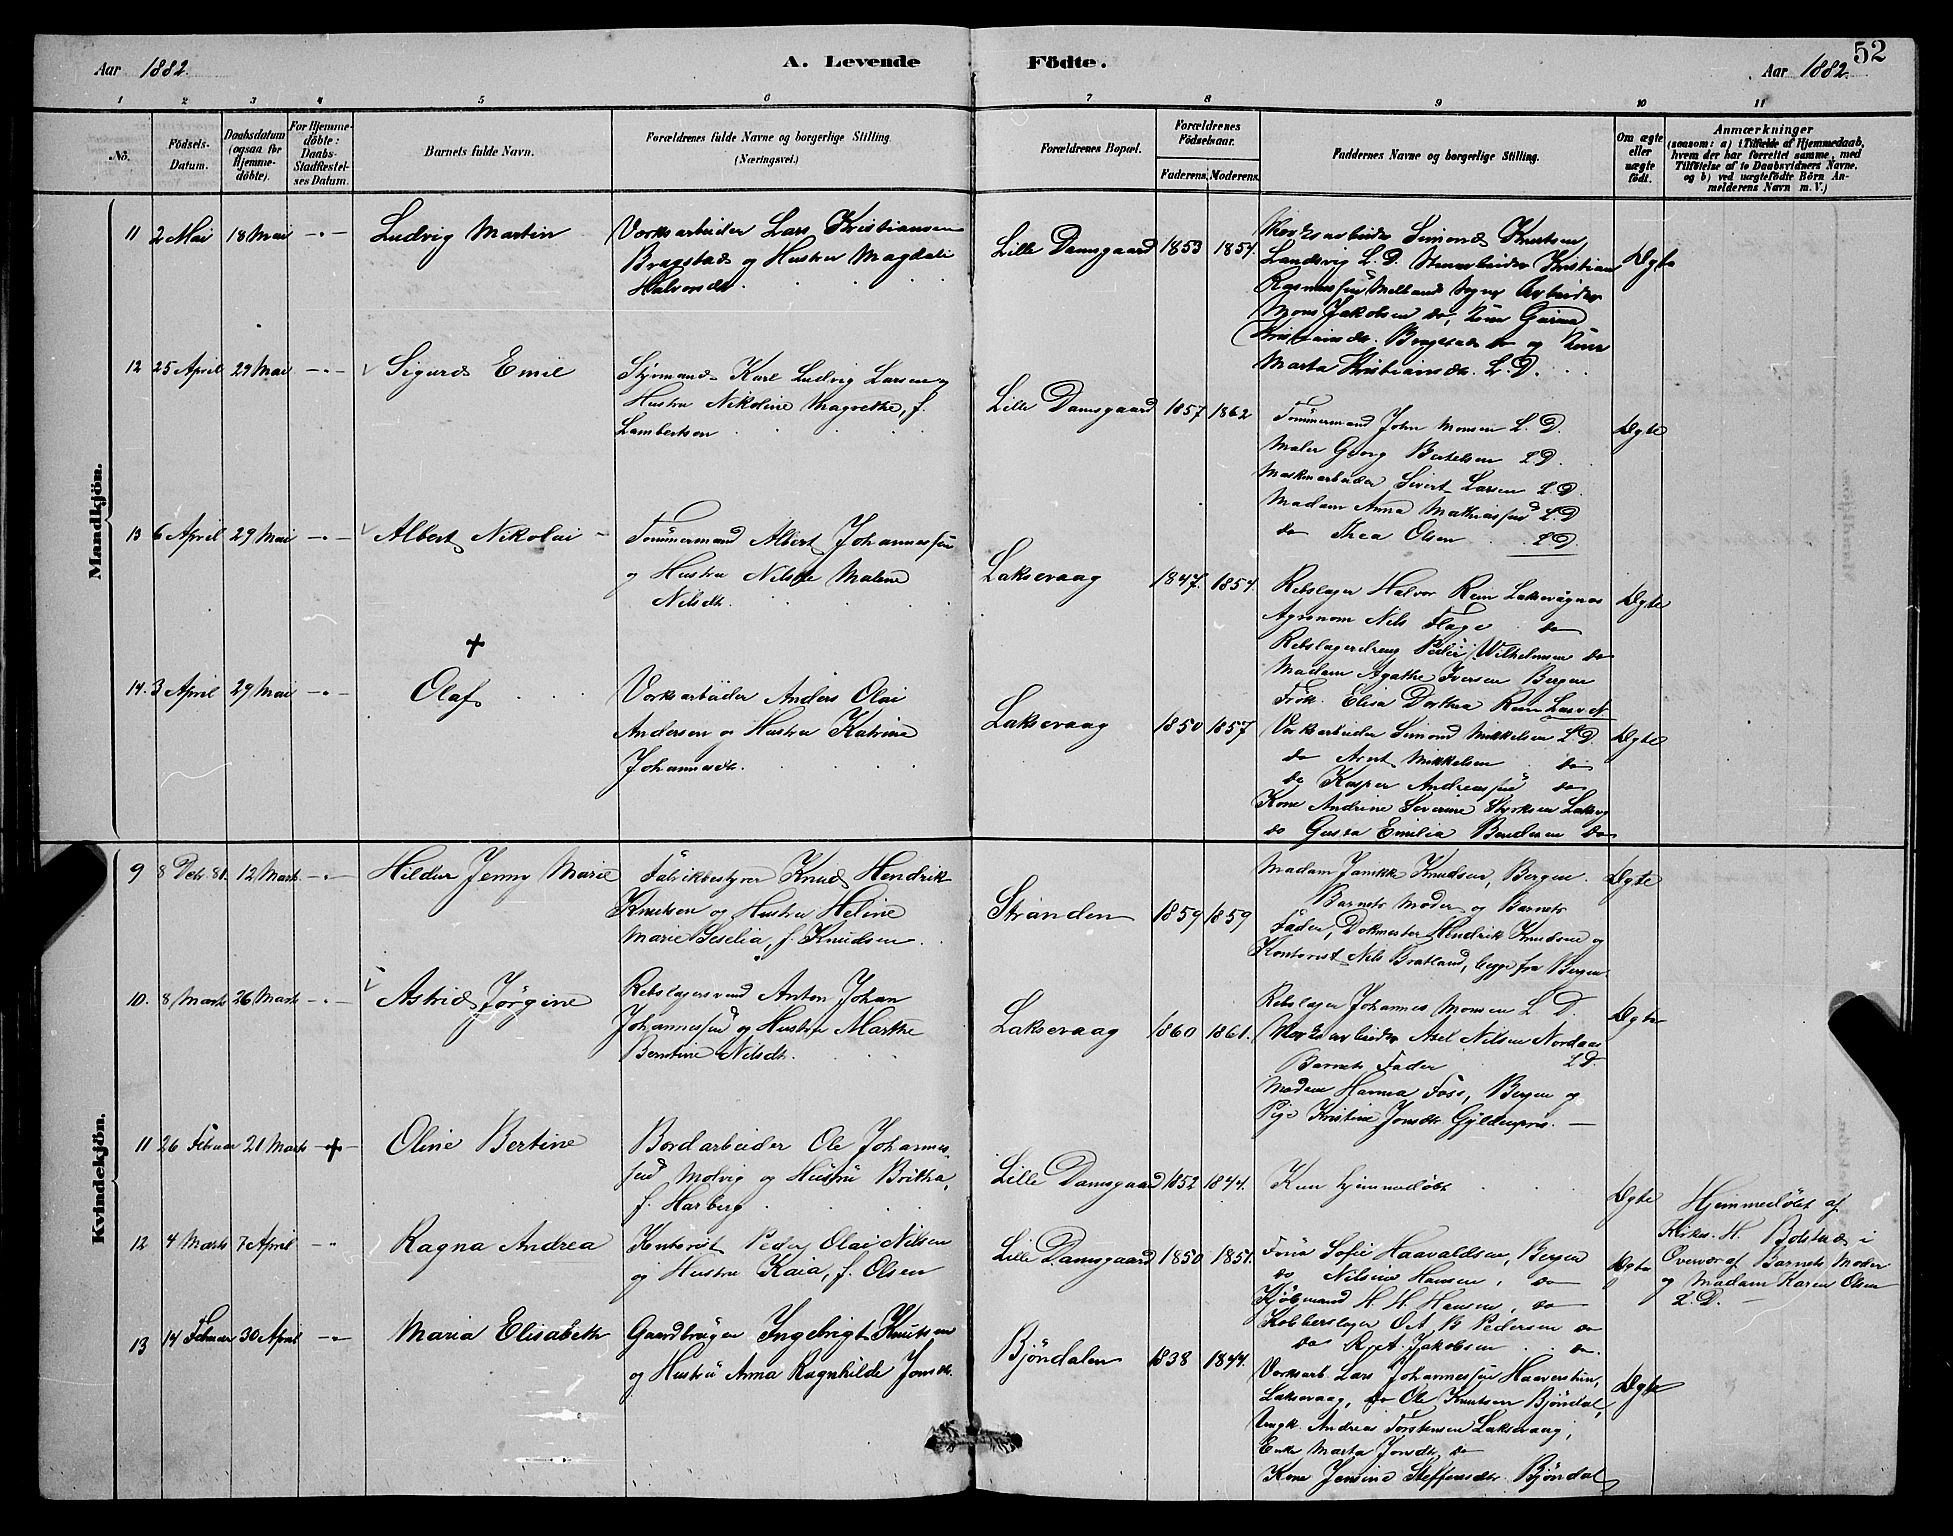 52
Aar 1882. A. Levende Födte. Aar 1882.
1 2 3 4 5 6 7 8 9 10 11
No. Födsels-Datum. Daabsdatum (ogsaa for Hjemme-döbte). For Hjemme-döbte: Daabs-Stadfæstel-ses Datum. Barnets fulde Navn. Forældrenes fulde Navne og borgerlige Stilling. (Næringsvei.) Forældrenes Bopæl. Forældrenes Födselsaar. Faderens. Moderens. Faddernes Navne og borgerlige Stilling. Om ægte eller uægte födt. Anmærkninger (saasom: a) i Tilfælde af Hjemmedaab, hvem der har forrettet samme, med Tilföielse af to Daabsvidners Navne, og b) ved uægtefödte Börn An-melderens Navn m. V.)
Mandkjön.
11 2 Mai 18 Mai -"- Ludvig Martin
Værksarbeider Lars Kristiansen
Bragstad og Hustru Magdali
Halvorsdr.
Lille Damsgaard 1853 1854.
Værksarbeider Simond Knutsen
Landsvig L. D. Stenarbeider Kristian
Rasmussen Melland Arbeider
Mons Jakobsen do, Kone Gurina
Kristiansdr. Bragstad do og Kone
Marta Kristiansdr. L. D.
Ægte
12 25 April 29 Mai -"- Sigurd Emil
Styrmand Karl Ludvig Larsen og
Hustru Nikoline Magrethe, f.
Lambertsen
Lille Damsgaard 1857 1862
Tømmermand John Monsen L. D.
Maler Georg Bertelsen L D.
Maskinarbeider Sivert Larsen L. D.
Madam Anna Mathiassen L D
do Thea Olsen L D
Ægte
13 6 April 29 Mai -"- Albert Nikolai
Tømmermand Albert Johannessen
og Hustru Nilsine Malene
Nilsdr.
Laksevaag 1847. 1854
Rebslager Halvor Rem Laksevågnes
Agronom Nils Flage do
Rebslagerdreng Peder Wilhelmsen do
Madam Agathe Iversen Bergen
Frøk. Elisa Dorthea Rem Laxv N.
Ægte
14. 3 April 29 Mai -"- Olaf
Værksarbeider Anders Olai
Andersen og Hustru Katrine
Johannesdr.
Laksevaag 1850 1857
Værksarbeider Simond Mikkelsen L D.
do Arnt Mikkelsen do
do Kasper Andreassen do
Kone Andrine Severine Styrksen Laksv
do Gusta Emilia Bendixen do
Ægte
Kvindekjön.
9 8 Decr. 81. 12 Marts -"- Hildur Jenny Marie
Fabrikbestyrer Knud Hendrik
Knutsen og Hustru Heline
Marie Seselia, f. Knudsen
Stranden 1859 1859
Madam Janikke Knudsen, Bergen.
Barnets Moder og Barnets
Fader, Dokmester Hendrik Knudsen og
Kontorist Nils Bratland, begge fra Bergen
Ægte
10. 8 Marts 26 Marts -"- Astrid Jörgine
Rebslagersvend Anton Johan
Johannessen og Hustru Marthe
Berntine Nilsdr.
Laksevaag 1860 1861.
Rebslager Johannes Monsen L D.
Værksarbeider Axel Nilsen Nordaas
Barnets Fader L D.
Madam Hanna Foss, Bergen og
Pige Kristine Jonsdr. Gyldenpris.
Ægte
11 26 Februar 21 Marts Oline Bertine
Bordarbeider Ole Johannes-
sen Molvig og Hustru Britha,
f. Harberg
Lille Damsgaard 1852 1844.
Kun hjemmedøbt
Ægte
Hjemmedøbt af
Kirkes. H. Bolstad i
Overvær af Barnets Moder
og Madam Karen Olsen
L. D.
12 4 Marts 7 April -"- Ragna Andrea
Kontorist Peder Olai Nilsen
og Hustru Kaia, f. Olsen
Lille Damsgaard 1850 1851.
Frua Sofie Haavaldsen, Bergen
do Nilsine Hansen, do
Kjøbmand H. H. Hansen, do
Kobberslager O. A. B Pedersen do
do R. A. Jakobsen do.
Ægte
13 14 Februar 30 April -"- Maria Elisabeth
Gaardbruger Ingebrigt Knutsen
og Hustru Anna Ragnhilde Jonsdr.
Bjöndalen 1838 1844.
Værksarb. Lars Johannessen Haaverstin,
Laksevaag, do Ole Knutsen Bjöndal,
Ungk. Andreas Torstensen Laksevaag,
Enke Marta Jonsdr. do
Kone Jensine Steffensdr. Bjöndal
Ægte